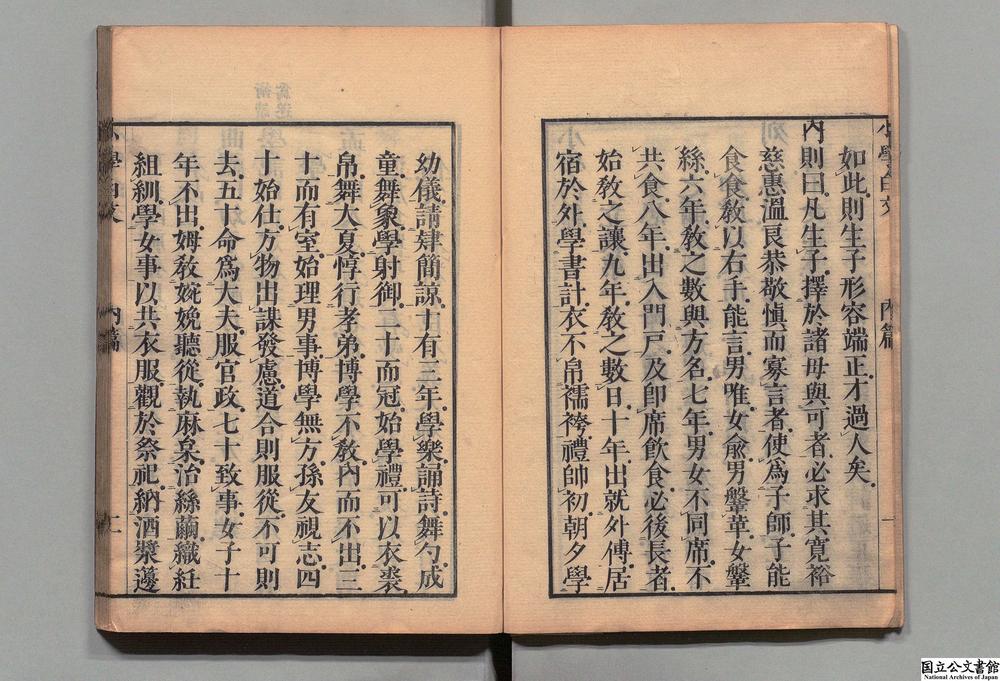 小學白文 內篇
如此則生子形容端正才過人矣
內則曰凡生子擇於諸母與可者必求其寬裕
慈惠溫良恭敬愼而寡言者使爲子師子能
食食敎以右手能言男唯女兪男鞶革女鞶
絲六年敎之數與方名七年男女不同席不
共食八年出入門戶及卽席飮食必後長者
始敎之讓九年敎之數日十年出就外傅居
宿於外學書計衣不帛襦袴禮帥初朝夕學
幼儀請肄簡諒十有三年學樂誦詩舞勺成
童舞象學射御二十而冠始學禮可以衣裘
帛舞大夏惇行孝弟博學不敎內而不出三
十而有室始理男事博學無方孫友視志四
十始仕方物出謀發慮道合則服從不可則
去五十命爲大夫服官政七十致事女子十
年不出姆敎婉娩聽從執麻枲治絲繭織紝
組紃學女事以共衣服觀於祭祀納酒漿籩
小學白文 內篇 二
国立公文書館
National Archives of Japan